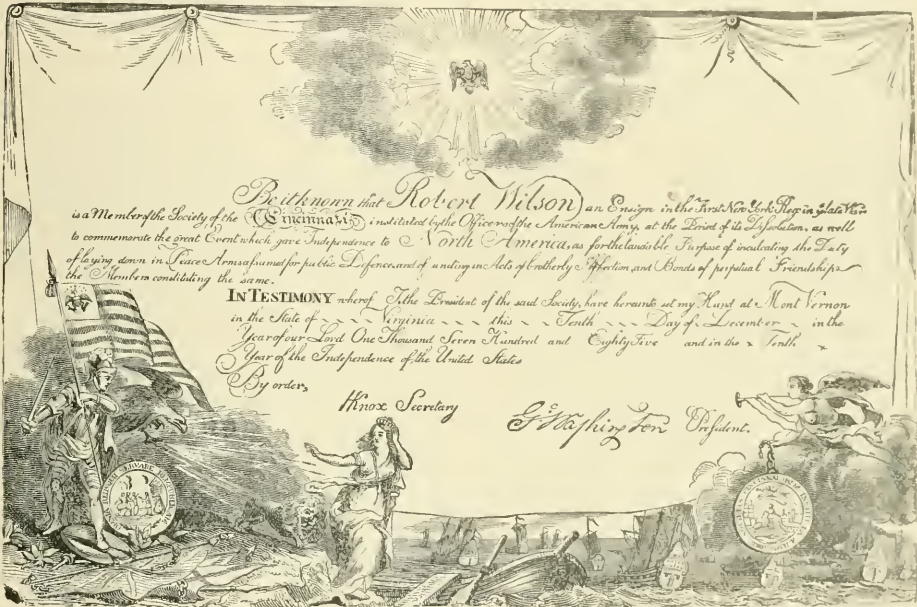 Be it known that Robert Wilson an Ensign in the First New York Reg. in ye late War
is a Member of the Society of the Cincinnati; instituted by the Officers of the American Army, at the Period of its Dissolution, as well
to commemorate the great Event which gave Independence to North America, as for the laudable Purpose of inculcating the Duty
of laying down in Peace Arms assumed for public Defence, and of uniting in Acts of brotherly Affection, and Bonds of perpetual Friendship
the Members constituting the same.
IN TESTIMONY wherof I, the President of the said Society, have hereunto set my Hand at Mont Vernon
in the State of Virginia this Tenth Day of December in the
Year of our Lord One Thousand Seven Hundred and Eighty Five and in the Tenth
Year of the Independence of the United States
By order,
HKnox Secretary
Go Washington President.